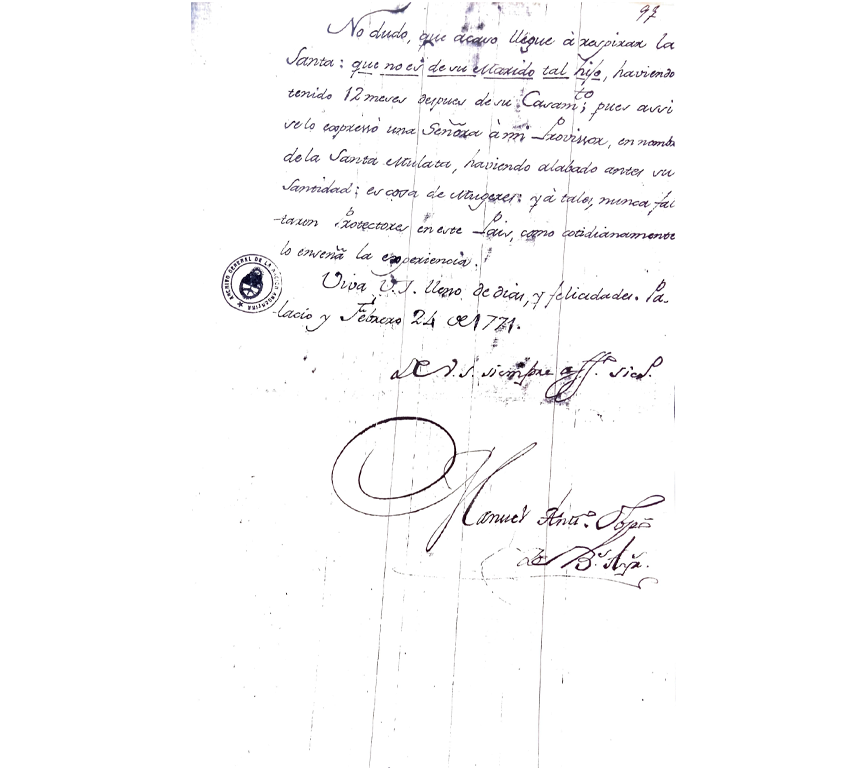 97
No dudo, que acaso llegue à respirar la
Santa: que no es de su Marido tal hijo, haviendo
tenido 12 meses despues de su Casam.to; pues assi
se lo expressò una Señora à mi Provissor, en nombre
de la Santa Mulata, haviendo alabado antes su
Santidad; es cosa de Mugeres: y à tales, nunca fal
-taron Protectores en este Pais, como cotidianamente
lo enseña la experiencia.
ARCHIVO GENERAL DE LA NACION ARGENTINA
Viva V.S. lleno de dias, y felicidades. Pa-
lacio y Febrero 24 de 1771.
De V.S. siempre aff.mo
Manuel Ant.o Obpo
de B.s Ay.s